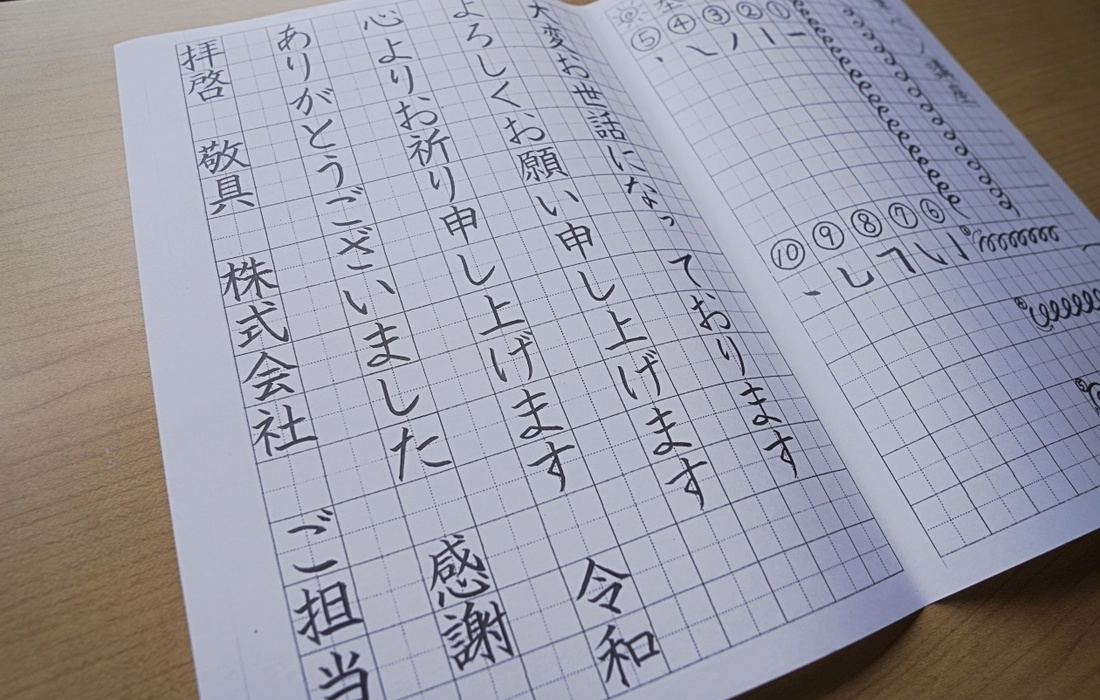 ⑤ ④ ③ ② ①
⑩ ⑨ ⑧ ⑦ ⑥
大変お世話になっております
よろしくお願い申し上げます 令和
心よりお祈り申し上げます 感謝
ありがとうございました
拝啓 敬具 株式会社 ご担当